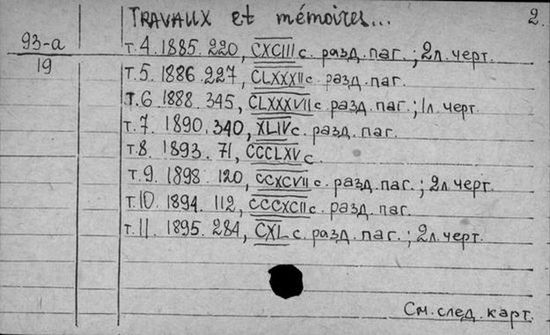 Travaux et mémoires... 2.
93-а
19
т.4. 1885. 220, CXCIII с. разд. паг.; 2л. черт.
т.5. 1886. 227, CLXXXII с. разд. паг.
т.6 1888. 345, CLXXXVII с. разд. паг.; 1л. черт.
т.7. 1890. 340, XLIV с. разд. паг.
т.8. 1893. 71, CCCLXV с.
т.9. 1898. 120, CCXCVII с. разд. паг.; 2л. черт.
т.10. 1894. 112, CCCXCII с. разд. паг.
т.11. 1895. 284, CXL с. разд. паг.; 2л. черт.
См. след. карт.